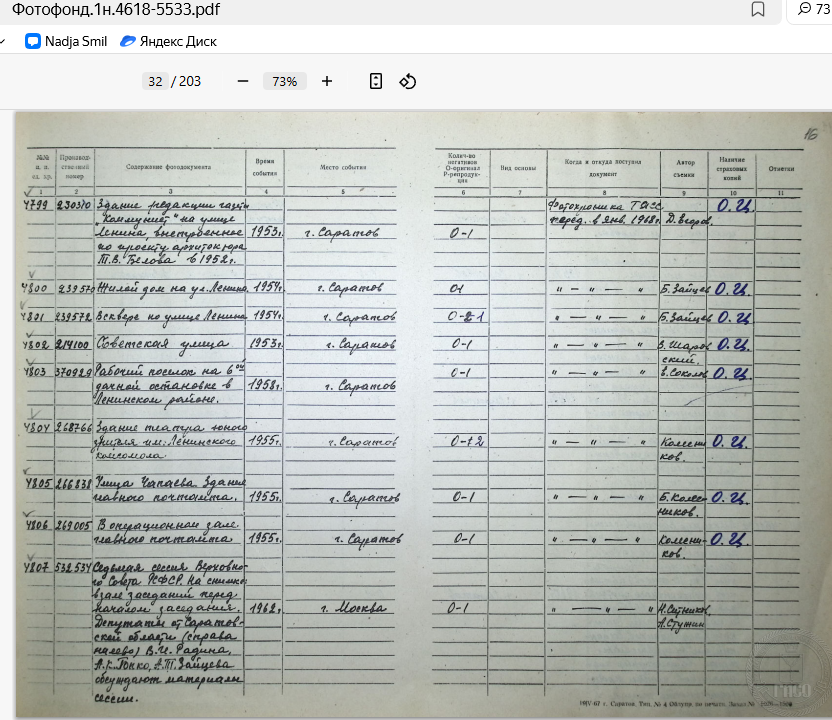 Фотофонд.1н.4618-5533.pdf
73
Nadja Smil
Яндекс Диск
32 / 203
73%
16
№№ п. п. ед. хр.
Производственный номер
Содержание фотодокумента
Время события
Место события
Колич-во негативов О-оригинал Р-репродукция
Вид основы
Когда и откуда поступил документ
Автор съемки
Наличие страховых копий
Отметки
1 2 3 4 5 6 7 8 9 10 11
4799 230370 Здание редакции газеты Фотохроника ТАСС О.Ц.
"Коммунист" на улице перед. в янв. 1968г. Д. Егоров.
Ленина, выстроенное 1953г. г. Саратов О-1
по проекту архитектора
Т.В. Белова в 1952г.
4800 Жилой дом на ул. Ленина 1954г. г. Саратов 01 " — " — " Б. Зайцев О.Ц.
4801 239572 В сквере по улице Ленина 1954г. г. Саратов 1 " — " — " Б. Зайцев О.Ц.
4802 214100 Советская улица 1953г. г. Саратов О-1 " — " — " О.Ц.
ский.
4803 370929 Рабочий поселок на 6ой О-1 " — " — " В. Соколов О.Ц.
дачной остановке в 1958г. г. Саратов
Ленинском районе.
4804 268766 Здание театра юного
зрителя им. Ленинского 1955г. г. Саратов " — " — " О.Ц.
комсомола ков.
4805 266838 Улица Чапаева. Здание
главного почтамта. 1955г. г. Саратов О-1 " — " — " О.Ц.
ников.
4806 269005 В операционном зале
главного почтамта 1955г. г. Саратов О-1 " — " — " О.Ц.
ков.
4807 532534 Седьмая сессия Верховно-
го Совета РСФСР. На снимке
в зале заседаний перед
началом заседания. 1962г. г. Москва О-1 " — " — " Н. Ситников,
Депутаты от Саратов-
ской области (справа
налево) В.И. Радина,
А.Т. Зайцева
обсуждают материалы
сессии.
г. Саратов. Тип. № 4